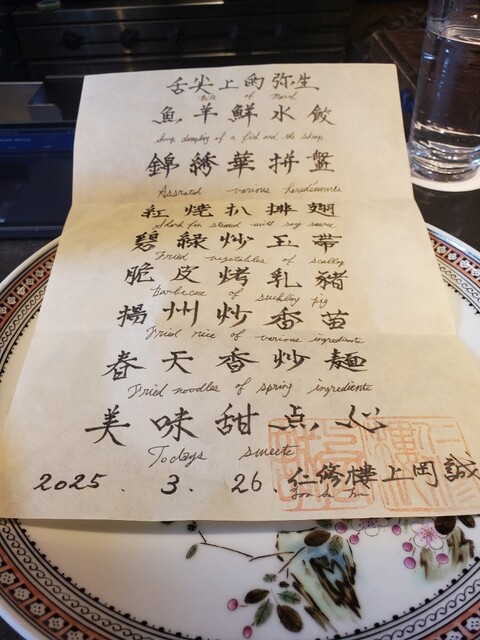 舌尖上的弥生
魚羊鮮水餃
Soup dumpling of a fish and the sheep
錦綉華拼盤
Assorted various horsdoeuvres
紅燒扒排翅
Shark fin steamed with soy sauce
碧緑炒玉帯
Fried vegetables of scallop
脆皮烤乳豬
barbecue of suckling pig
揚州炒香苗
Fried rice of various ingredients
春天香炒麺
Fried noodles of spring ingredients
美味甜点心
Todays sweets
2025. 3. 26. 仁修樓上岡誠